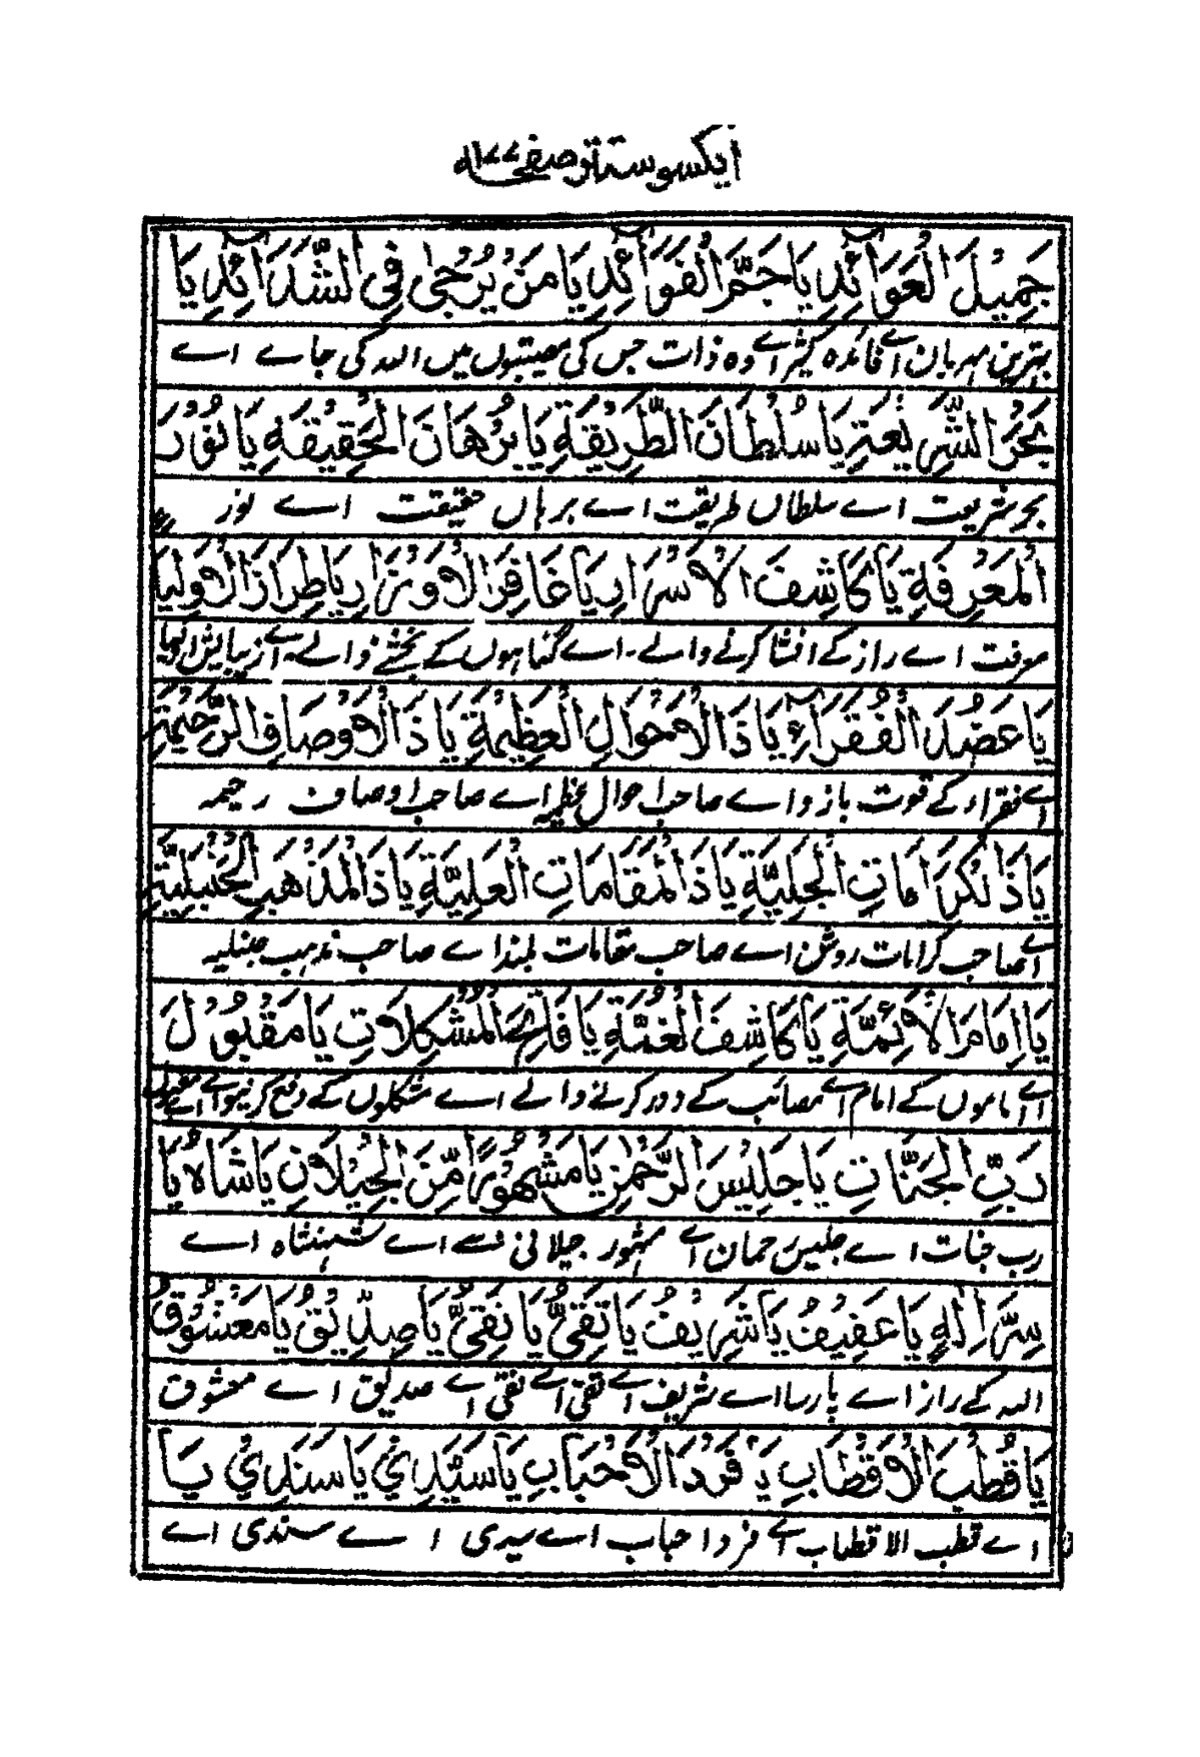 ایکسو ستتر صفحہ ۱۷۷
جَمِيْلَ الْعَوَآئِدِ يَا جَمَّ الْفَوَآئِدِ يَا مَنْ يُرْجٰى فِي الشَّدَآئِدِ يَا
بہترین مہربان اے فائدہ کثیر اے وہ ذات جس کی مصیبتوں میں امداد کی جاے اے
بَحْرَ الشَّرِيْعَةِ يَا سُلْطَانَ الطَّرِيْقَةِ يَا بُرْهَانَ الْحَقِيْقَةِ يَا نُوْرَ
بحر شریعت اے سلطاں طریقت اے برہاں حقیقت اے نور
الْمَعْرِفَةِ يَا كَاشِفَ الْاَسْرَارِ يَا غَافِرَ الْاَوْزَارِ يَا طِرَازَ الْاَوْلِيَا
معرفت اے راز کے افشا کرنے والے۔ اے گناہوں کے بخشنے والے۔ اے زیبایش اولیا
يَا عَضُدَ الْفُقَرَآءِ يَا ذَا الْاَحْوَالِ الْعَظِيْمَةِ يَا ذَا الْاَوْصَافِ الرَّحِيْمَةِ
اے فقراء کے قوت بازو اے صاحب احوال عظیمہ اے صاحب اوصاف رحیمہ
يَا ذَالْكَرَامَاتِ الْجَلِيَّةِ يَا ذَا الْمَقَامَاتِ الْعَلِيَّةِ يَا ذَا الْمَذْهَبِ الْحَنْبَلِيَّةِ
اے صاحب کرامات روشن اے صاحب مقامات بلند اے صاحب مذہب حنبلیہ
يَا اِمَامَ الْاَئِمَّةِ يَا كَاشِفَ الْغُمَّةِ يَا فَاتِحَ الْمُشْكِلَاتِ يَا مَقْبُوْلَ
اے اماموں کے امام اے مصائب کے دور کرنے والے اے مشکلوں کے دفع کرنیوالے اے مقبول
رَبِّ الْجَنَّاتِ يَا جَلِيْسَ الرَّحْمٰنِ يَا مَشْهُوْرًا مِّنَ الْجِيْلَانِ يَا شَاهُ يَا
رب جنات اے جلیس رحمان اے مشہور جیلانی سے اے شہنشاہ اے
سِرَّ اِلٰهِ يَا عَفِيْفُ يَا شَرِيْفُ يَا تَقِيُّ يَا نَقِيُّ يَا صِدِّيْقُ يَا مَعْشُوْقُ
اللہ کے راز اے پارسا اے شریف اے تقی اے نقی اے صدیق اے معشوق
يَا قُطْبَ الْاَقْطَابِ يَا فَرْدَ الْاَحْبَابِ يَا سَيِّدِيْ يَا سَنَدِيْ يَا
اے قطب الاقطاب اے فرد احباب اے سیدی اے سندی اے